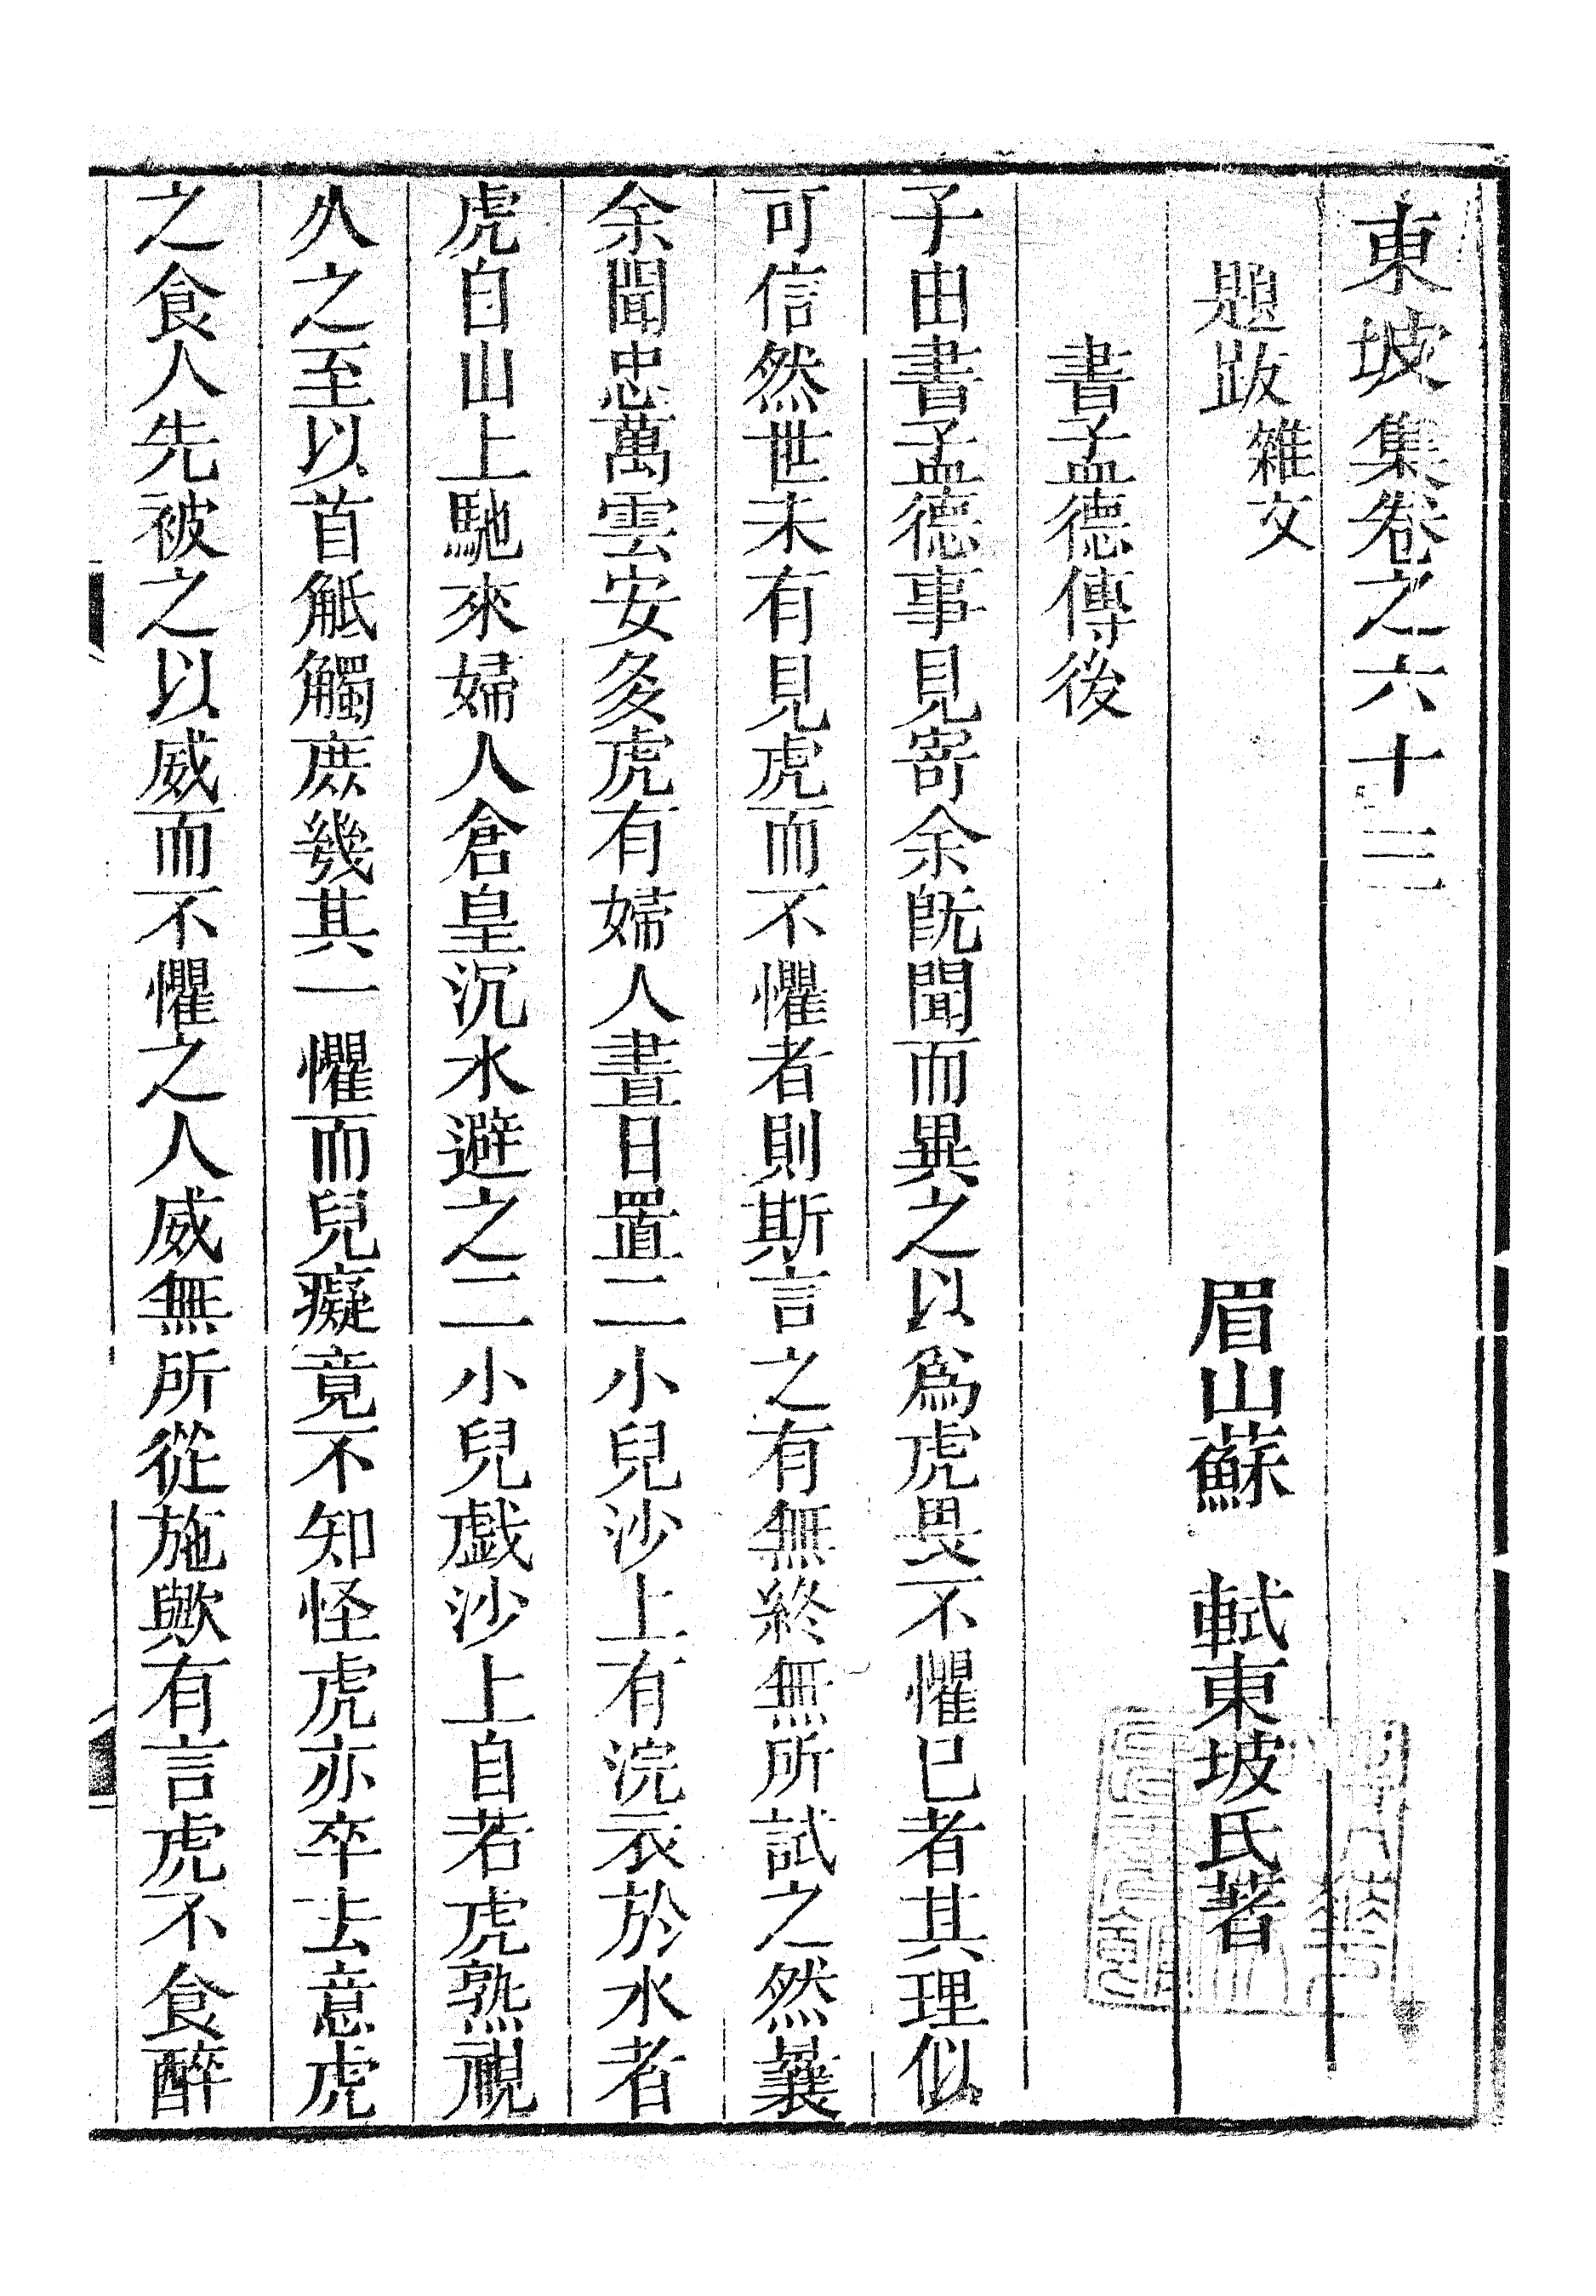 東坡集卷之六十三
題跋雜文
眉山蘇 軾東坡氏著
書孟德傳後
子由書孟德事見寄余旣聞而異之以爲虎畏不懼已者其理似
可信然世未有見虎而不懼者則斯言之有無終無所試之然曩
余聞忠萬雲安多虎有婦人晝日置二小兒沙上有浣衣於水者
虎自山上馳來婦人倉皇沉水避之二小兒戲沙上自若虎熟視
久之至以首觝觸庶幾其一懼而兒癡竟不知怪虎亦卒去意虎
之食人先被之以威而不懼之人威無所從施歟有言虎不食醉